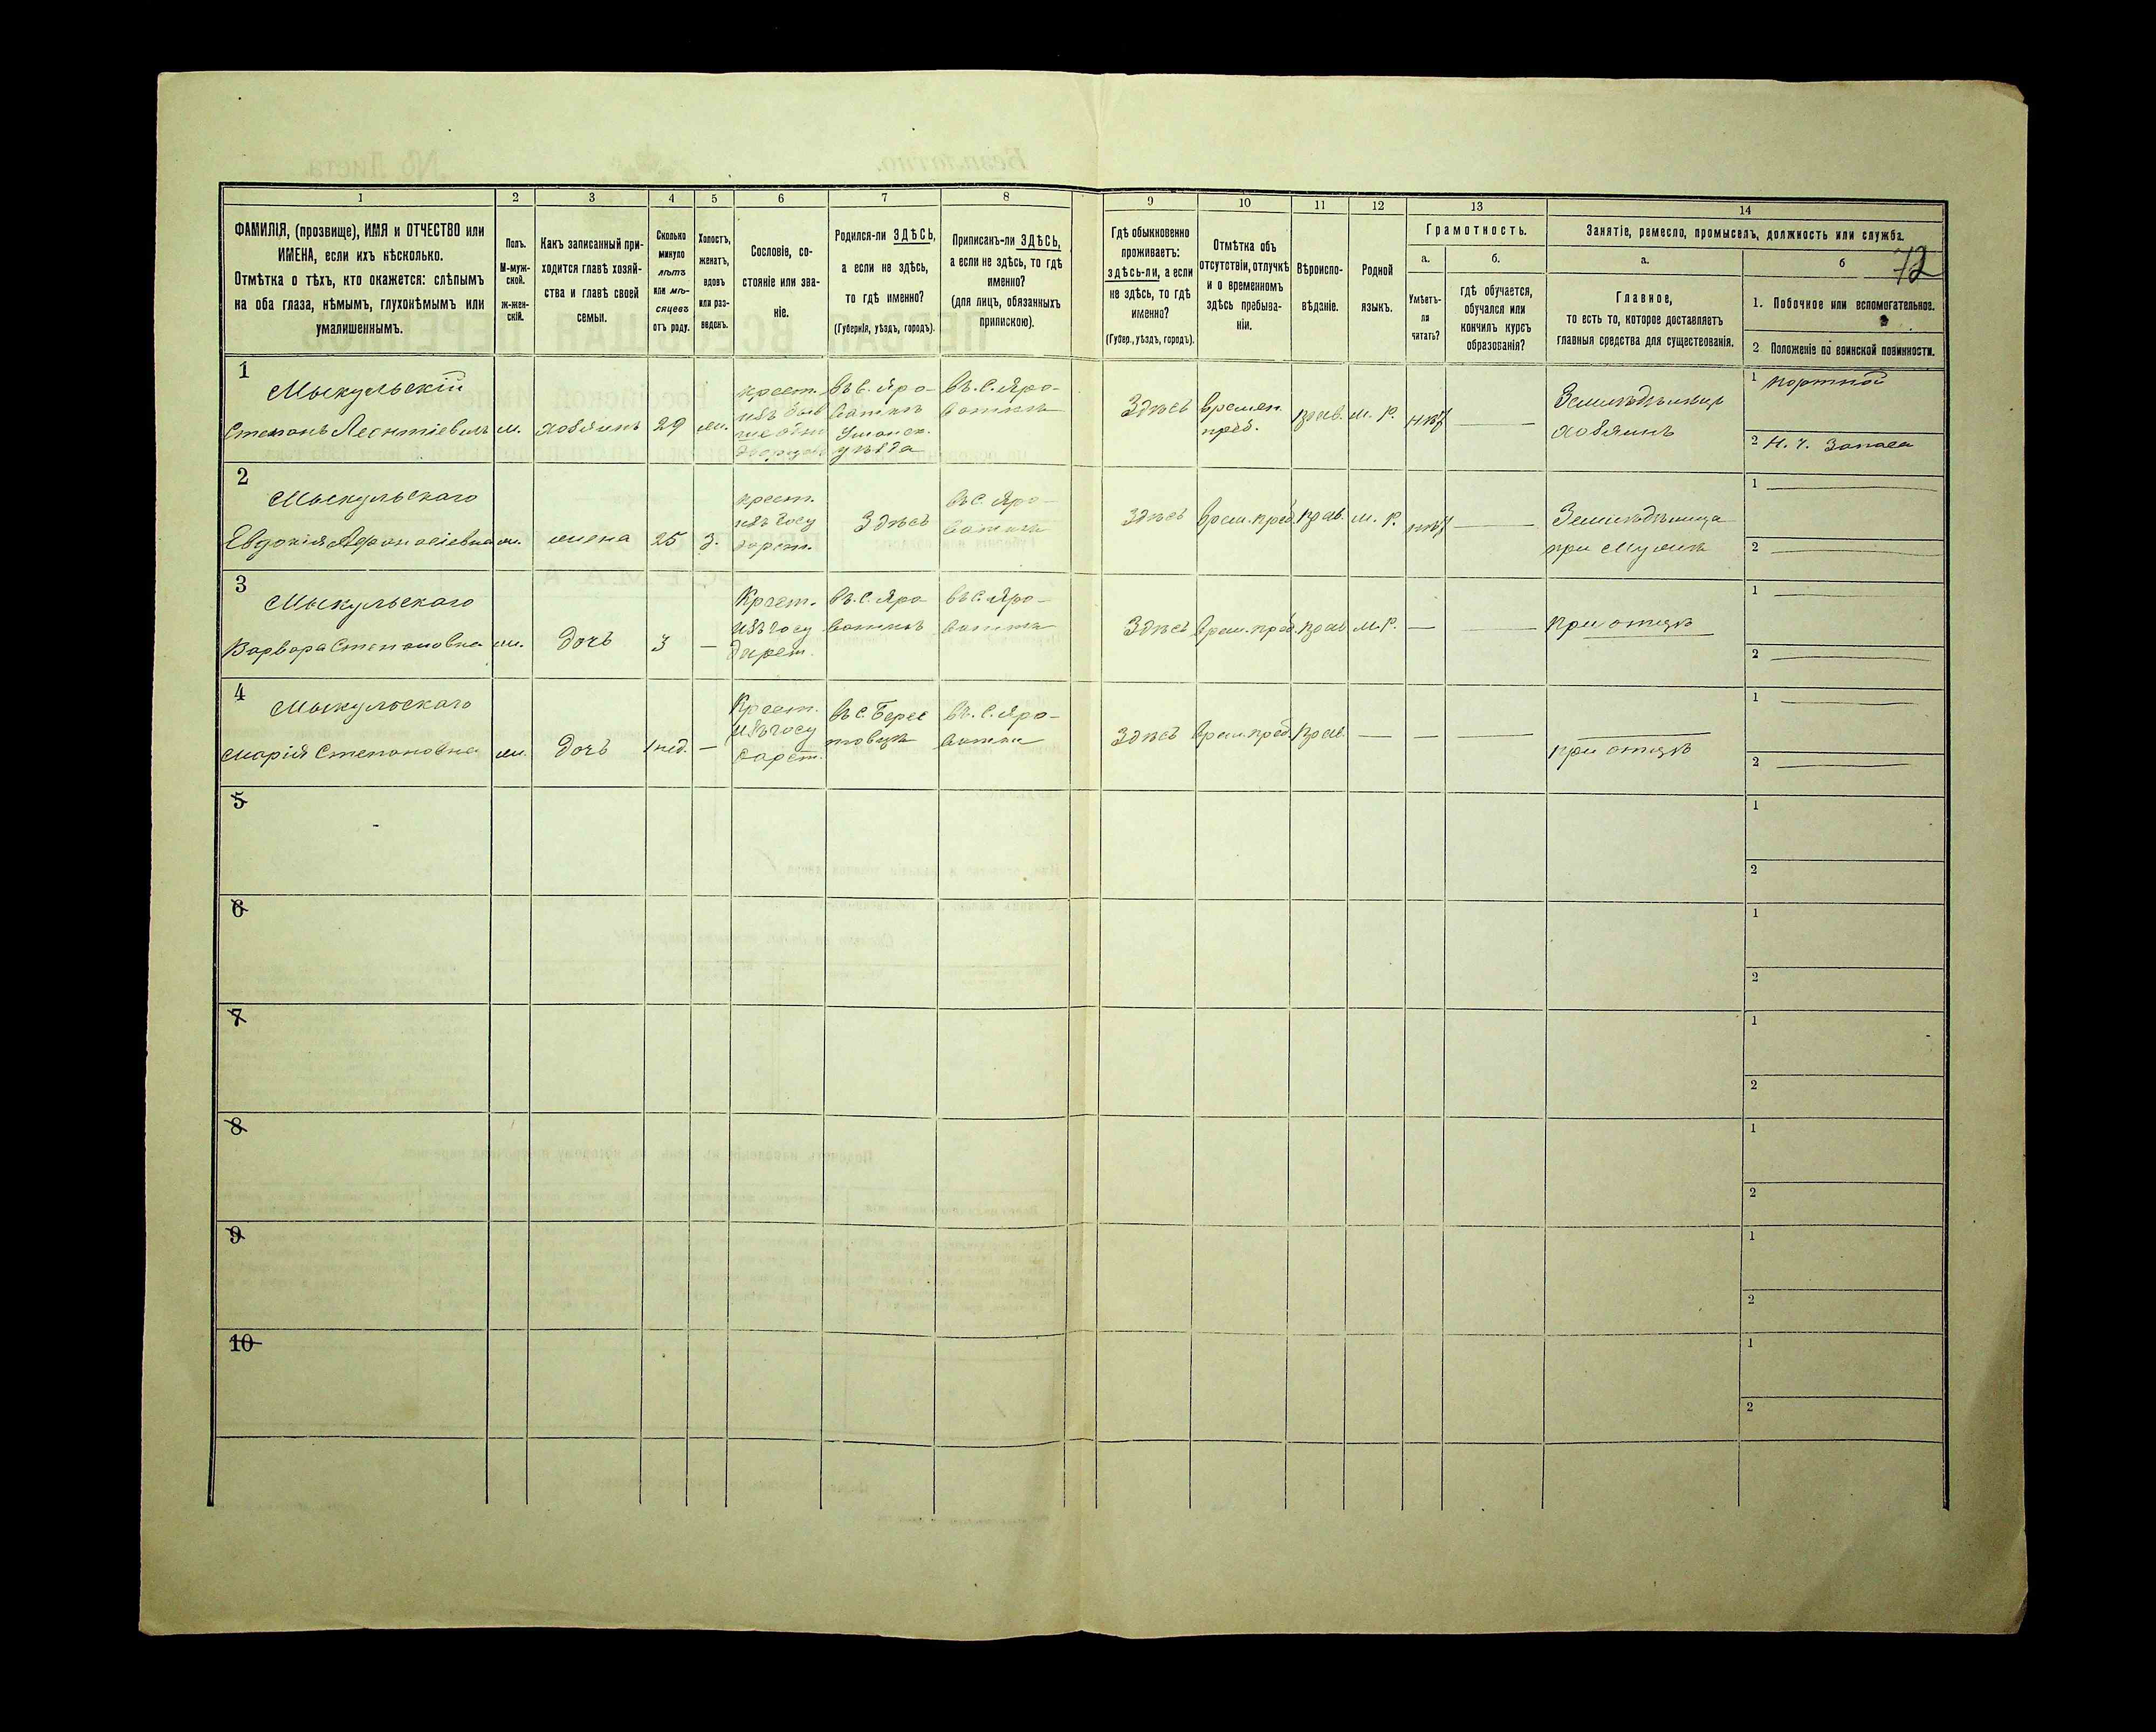 1 2 3 4 5 6 7 8 9 10 11 12 13 14
ФАМИЛІЯ, (прозвище), ИМЯ и ОТЧЕСТВО или
ИМЕНА, если ихъ нѣсколько.
Отмѣтка о тѣхъ, кто окажется: слѣпымъ
на оба глаза, нѣмымъ, глухонѣмымъ или
умалишеннымъ.
Полъ.
М-муж-
ской.
ж-жен-
скій.
Какъ записанный при-
ходится главѣ хозяй-
ства и главѣ своей
семьи.
Сколько
минуло
лѣтъ
или мѣ-
сяцевъ
отъ роду.
Холостъ,
женатъ,
вдовъ
или раз-
веденъ.
Сословіе, со-
стояніе или зва-
ніе.
Родился-ли ЗДѢСЬ,
а если не здѣсь,
то гдѣ именно?
(Губернія, уѣздъ, городъ).
Приписанъ-ли ЗДѢСЬ,
а если не здѣсь, то гдѣ
именно?
(для лицъ, обязанныхъ
припискою).
Гдѣ обыкновенно
проживаетъ:
здѣсь-ли, а если
не здѣсь, то гдѣ
именно?
(Губер., уѣздъ, городъ).
Отмѣтка объ
отсутствіи, отлучкѣ
и о временномъ
здѣсь пребыва-
ніи.
Вѣроиспо-
вѣданіе.
Родной
языкъ.
Грамотность.
а.
Умѣетъ-
ли
читать?
б.
гдѣ обучается,
обучался или
кончилъ курсъ
образованія?
Занятіе, ремесло, промыселъ, должность или служба.
72
а.
Главное,
то есть то, которое доставляетъ
главныя средства для существованія.
б
1. Побочное или вспомогательное.
2 Положеніе по воинской повинности.
1
Мыкульскій
Степанъ Леонтіевичъ
м.
хозяинъ
29
ж.
крест.
изъ быв
дворцов
въ с. Яро-
ваткѣ
Уманск.
уѣзда
въ. с. Яро-
ваткѣ
Здѣсь
времен.
преб.
прав.
м. р.
нѣт
Земледѣлецъ
хозяинъ
1 портной
2 Н. Ч. Запаса
2
Мыкульскаго
Евдокія Афанасіевна
ж.
жена
25
З.
крест.
изъ госу
дарст.
Здѣсь
въ с. Яро-
ваткѣ
Здѣсь
врем. преб.
прав.
м. р.
нѣт
Земледѣлица
при Мужѣ
1
2
3
Мыкульскаго
Варвара Степановна
ж.
дочь
3
—
Крест.
изъ госу
дарст.
въ. с. Яро
ваткѣ
въ с. Яро-
ваткѣ
Здѣсь
врем. преб.
прав
м. р.
—
при отцѣ
1
2
4
Мыкульскаго
Марія Степановна
ж.
дочь
1 нед.
—
Крест.
изъ госу
дарст.
въ с. Берес
товцѣ
въ. с. Яро-
ватки
Здѣсь
врем. преб.
прав.
—
—
при отцѣ
1
2
5
1
2
6
1
2
7
1
2
8
1
2
9
1
2
10
1
2